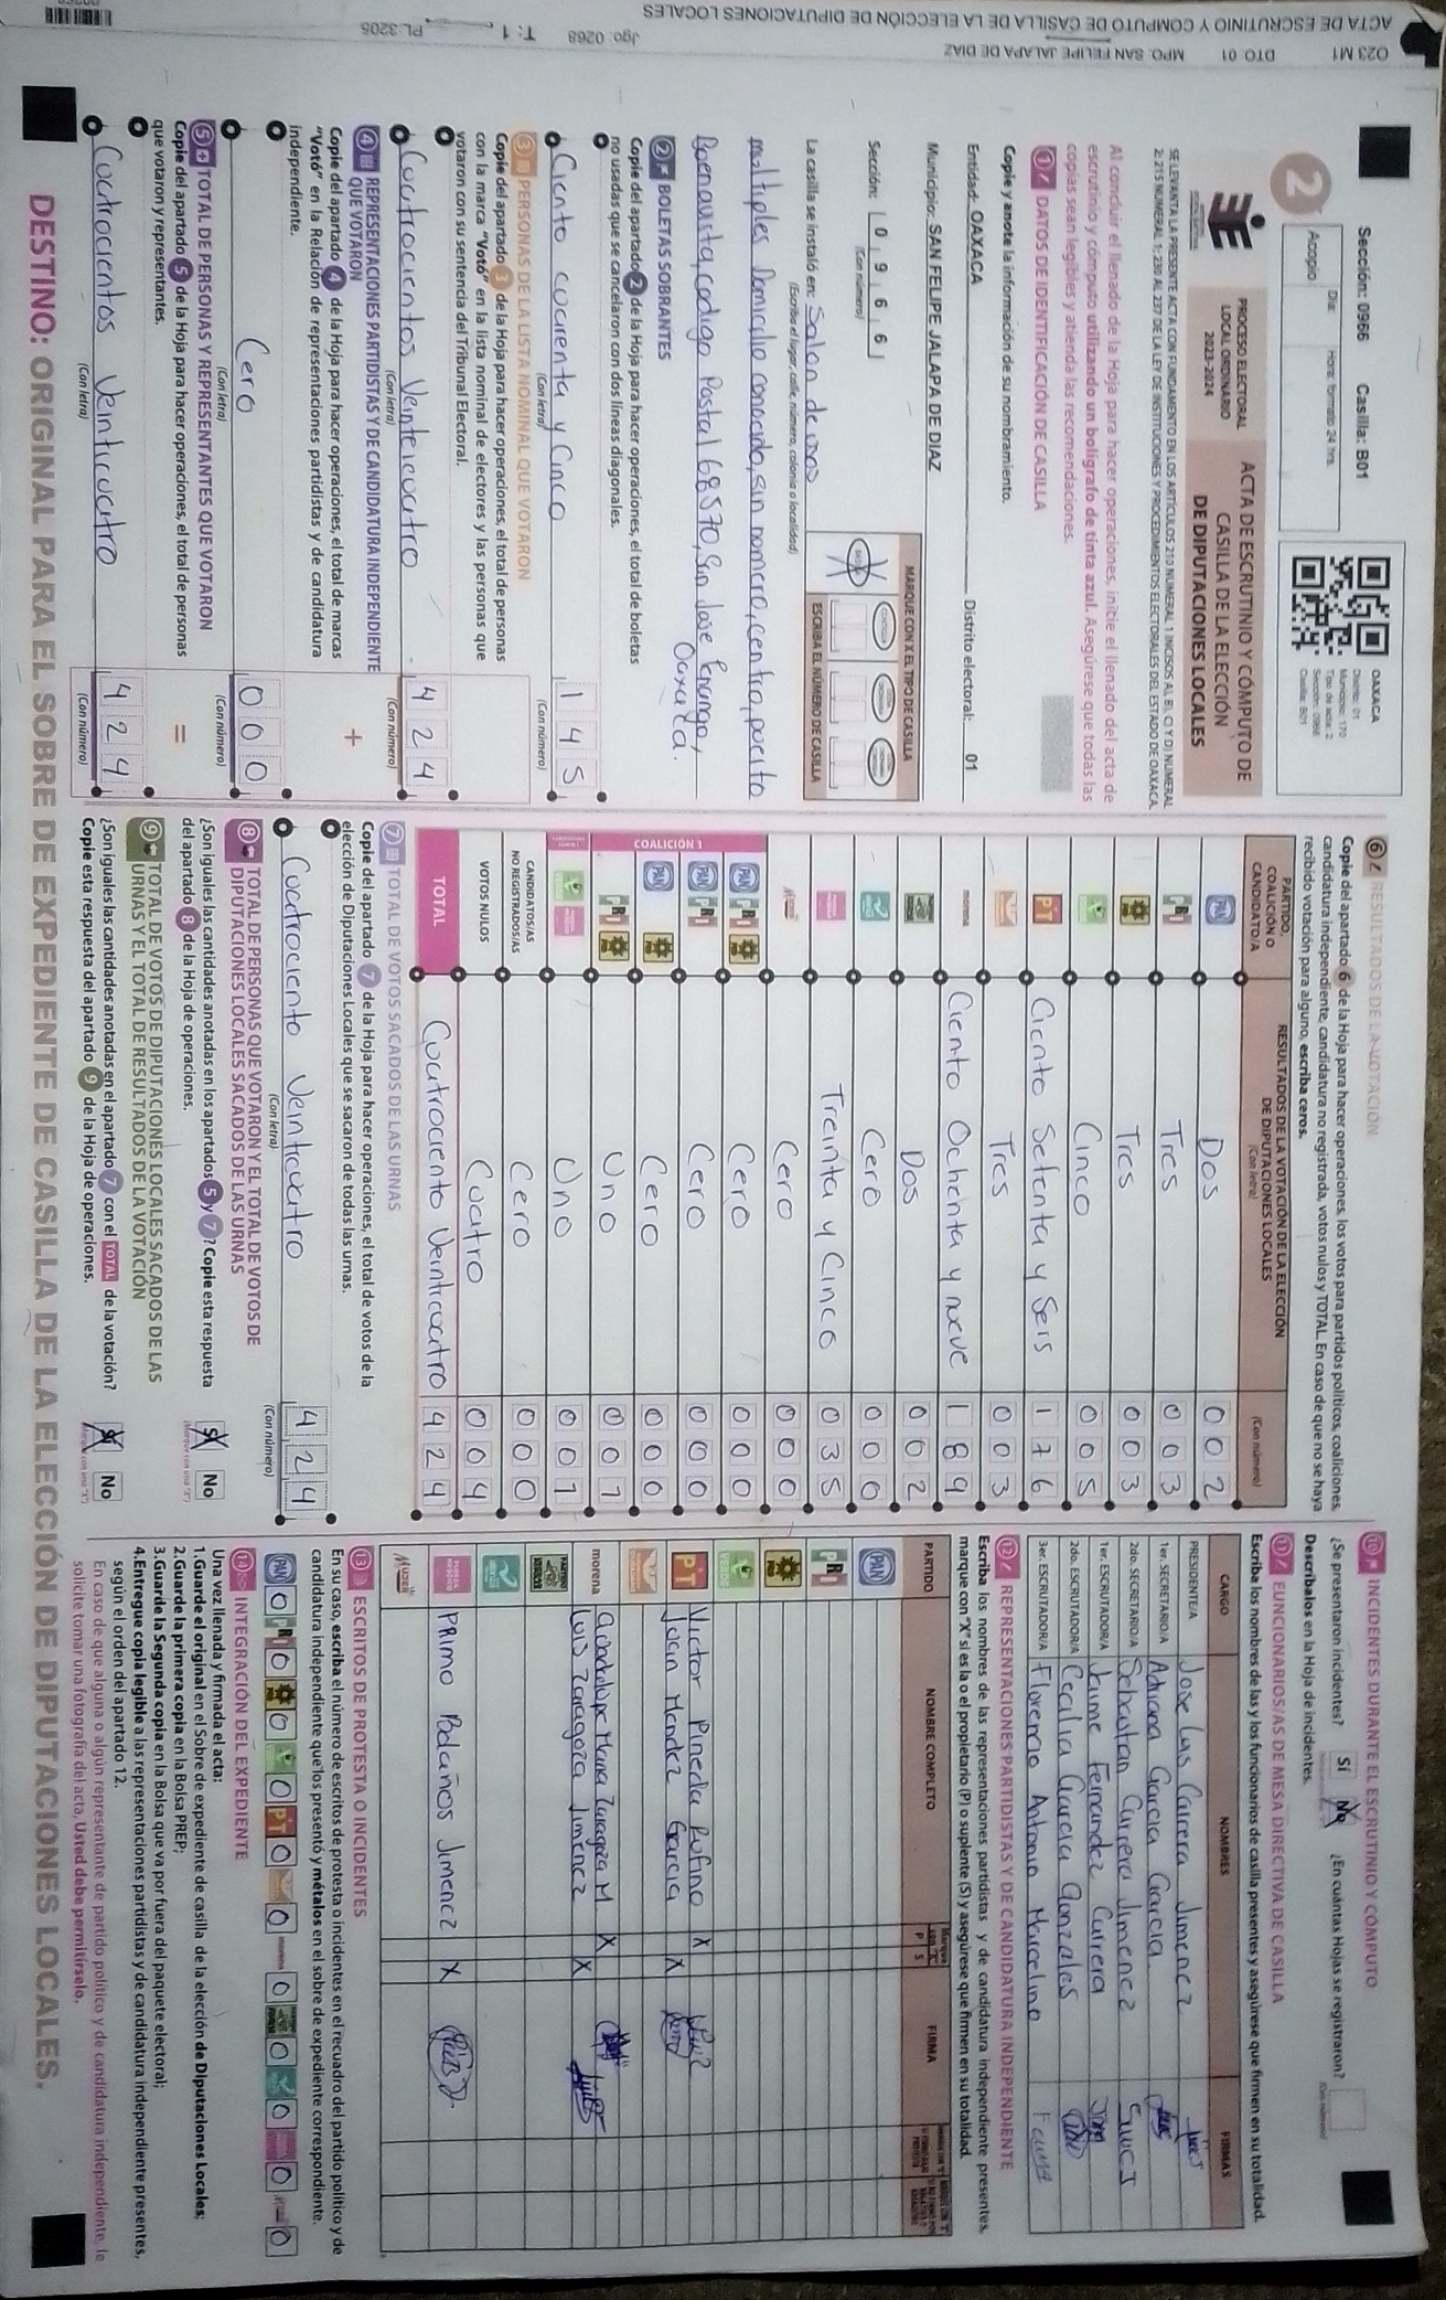 ACTA DE ESCRUTINIO Y CÓMPUTO DE CASILLA DE LA ELECCIÓN DE DIPUTACIONES LOCALES
O23 M1 DTO. 01 MPO. SAN FELIPE JALAPA DE DIAZ Jgo. 0268 T: 1 PL.3205
Sección: 0966 Casilla: B01
2
Día: Hora: formato 24 hrs.
Acopio
OAXACA
Distrito: 01
Municipio: 170
Tipo de acta: 2
Sección: 0966
Casilla: B01
PROCESO ELECTORAL
LOCAL ORDINARIO
2023-2024
ACTA DE ESCRUTINIO Y CÓMPUTO DE
CASILLA DE LA ELECCIÓN
DE DIPUTACIONES LOCALES
Al concluir el llenado de la Hoja para hacer operaciones, inicie el llenado del acta de
escrutinio y cómputo utilizando un bolígrafo de tinta azul. Asegúrese que todas las
copias sean legibles y atienda las recomendaciones.
1 DATOS DE IDENTIFICACIÓN DE CASILLA
Copie y anote la información de su nombramiento.
Entidad: OAXACA Distrito electoral: 01
Municipio: SAN FELIPE JALAPA DE DIAZ
Sección: 0 9 6 6
(Con número)
MARQUE CON X EL TIPO DE CASILLA
ESCRIBA EL NÚMERO DE CASILLA
La casilla se instaló en: Salon de usos
(Escriba el lugar, calle, número, colonia o localidad)
multiples Domicilio conocido, sin numero, centro, pocito
Buenavista, codigo Postal 68570, San Jose
Oaxaca.
2 BOLETAS SOBRANTES
Copie del apartado 2 de la Hoja para hacer operaciones, el total de boletas
no usadas que se cancelaron con dos líneas diagonales.
Ciento cuarenta y Cinco 1 4 5
(Con letra) (Con número)
3 PERSONAS DE LA LISTA NOMINAL QUE VOTARON
Copie del apartado 3 de la Hoja para hacer operaciones, el total de personas
con la marca "Votó" en la lista nominal de electores y las personas que
votaron con su sentencia del Tribunal Electoral.
Cuatrocientos Veinticuatro 4 2 4
(Con letra) (Con número)
4 REPRESENTACIONES PARTIDISTAS Y DE CANDIDATURA INDEPENDIENTE
QUE VOTARON +
Copie del apartado 4 de la Hoja para hacer operaciones, el total de marcas
"Votó" en la Relación de representaciones partidistas y de candidatura
independiente.
Cero 0 0 0
(Con letra) (Con número)
5 TOTAL DE PERSONAS Y REPRESENTANTES QUE VOTARON
Copie del apartado 5 de la Hoja para hacer operaciones, el total de personas
que votaron y representantes. =
Cuatrocientos Veinticuatro 4 2 4
(Con letra) (Con número)
6 RESULTADOS DE LA VOTACIÓN
Copie del apartado 6 de la Hoja para hacer operaciones, los votos para partidos políticos, coaliciones,
candidatura independiente, candidatura no registrada, votos nulos y TOTAL. En caso de que no se haya
recibido votación para alguno, escriba ceros.
PARTIDO, COALICIÓN O CANDIDATO/A
RESULTADOS DE LA VOTACIÓN DE LA ELECCIÓN DE DIPUTACIONES LOCALES
(Con letra) (Con número)
PAN Dos 0 0 2
PRI Tres 0 0 3
PRD Tres 0 0 3
Cinco 0 0 5
PT Ciento Setenta y Seis 1 7 6
Tres 0 0 3
morena Ciento Ochenta y nueve 1 8 9
Dos 0 0 2
Cero 0 0 0
Treinta y Cinco 0 3 5
Mujer Cero 0 0 0
COALICIÓN 1
PAN PRI PRD Cero 0 0 0
PAN PRI Cero 0 0 0
PAN PRD Cero 0 0 0
PRI PRD Uno 0 0 1
Uno 0 0 1
CANDIDATOS/AS NO REGISTRADOS/AS Cero 0 0 0
VOTOS NULOS Cuatro 0 0 4
TOTAL Cuatrociento Veinticuatro 4 2 4
7 TOTAL DE VOTOS SACADOS DE LAS URNAS
Copie del apartado 7 de la Hoja para hacer operaciones, el total de votos de la
elección de Diputaciones Locales que se sacaron de todas las urnas.
Cuatrociento Veinticuatro 4 2 4
(Con letra) (Con número)
8 TOTAL DE PERSONAS QUE VOTARON Y EL TOTAL DE VOTOS DE
DIPUTACIONES LOCALES SACADOS DE LAS URNAS
¿Son iguales las cantidades anotadas en los apartados 5 y 7? Copie esta respuesta
del apartado 8 de la Hoja de operaciones. Sí No
9 TOTAL DE VOTOS DE DIPUTACIONES LOCALES SACADOS DE LAS
URNAS Y EL TOTAL DE RESULTADOS DE LA VOTACIÓN
¿Son iguales las cantidades anotadas en el apartado 7 con el TOTAL de la votación?
Copie esta respuesta del apartado 9 de la Hoja de operaciones. Sí No
10 INCIDENTES DURANTE EL ESCRUTINIO Y CÓMPUTO
¿Se presentaron incidentes? Sí No ¿En cuántas Hojas se registraron?
Descríbalos en la Hoja de incidentes.
11 FUNCIONARIOS/AS DE MESA DIRECTIVA DE CASILLA
Escriba los nombres de las y los funcionarios de casilla presentes y asegúrese que firmen en su totalidad.
CARGO NOMBRES FIRMAS
PRESIDENTE/A Jose Luis Carrera Jimenez
1er. SECRETARIO/A Adriana Garcia Garcia
2do. SECRETARIO/A Sebastian Carrera Jimenez
1er. ESCRUTADOR/A Jaime Fernandez Carrera
2do. ESCRUTADOR/A Cecilia Garcia Gonzales
3er. ESCRUTADOR/A Florencio Antonio Marcelino
12 REPRESENTACIONES PARTIDISTAS Y DE CANDIDATURA INDEPENDIENTE
Escriba los nombres de las representaciones partidistas y de candidatura independiente presentes,
marque con "X" si es la o el propietario (P) o suplente (S) y asegúrese que firmen en su totalidad.
PARTIDO NOMBRE COMPLETO P S FIRMA
PAN
PRI
PRD
VERDE
PT Victor Pineda Rufino X
Juan Mendez Garcia X
morena Guadalupe Maria Zaragoza M. X
Luis Zaragoza Jimenez X
PRImo Bolaños Jimenez X
Mujer
13 ESCRITOS DE PROTESTA O INCIDENTES
En su caso, escriba el número de escritos de protesta o incidentes en el recuadro del partido político y de
candidatura independiente que los presentó y métalos en el sobre de expediente correspondiente.
PAN 0 PRI 0 PRD 0 0 PT 0 0 morena 0 0 0 0 0
14 INTEGRACIÓN DEL EXPEDIENTE
Una vez llenada y firmada el acta:
1.Guarde el original en el Sobre de expediente de casilla de la elección de Diputaciones Locales;
2.Guarde la primera copia en la Bolsa PREP;
3.Guarde la Segunda copia en la Bolsa que va por fuera del paquete electoral;
4.Entregue copia legible a las representaciones partidistas y de candidatura independiente presentes,
según el orden del apartado 12.
En caso de que alguna o algún representante de partido político y de candidatura independiente, le
solicite tomar una fotografía del acta, Usted debe permitírselo.
DESTINO: ORIGINAL PARA EL SOBRE DE EXPEDIENTE DE CASILLA DE LA ELECCIÓN DE DIPUTACIONES LOCALES.